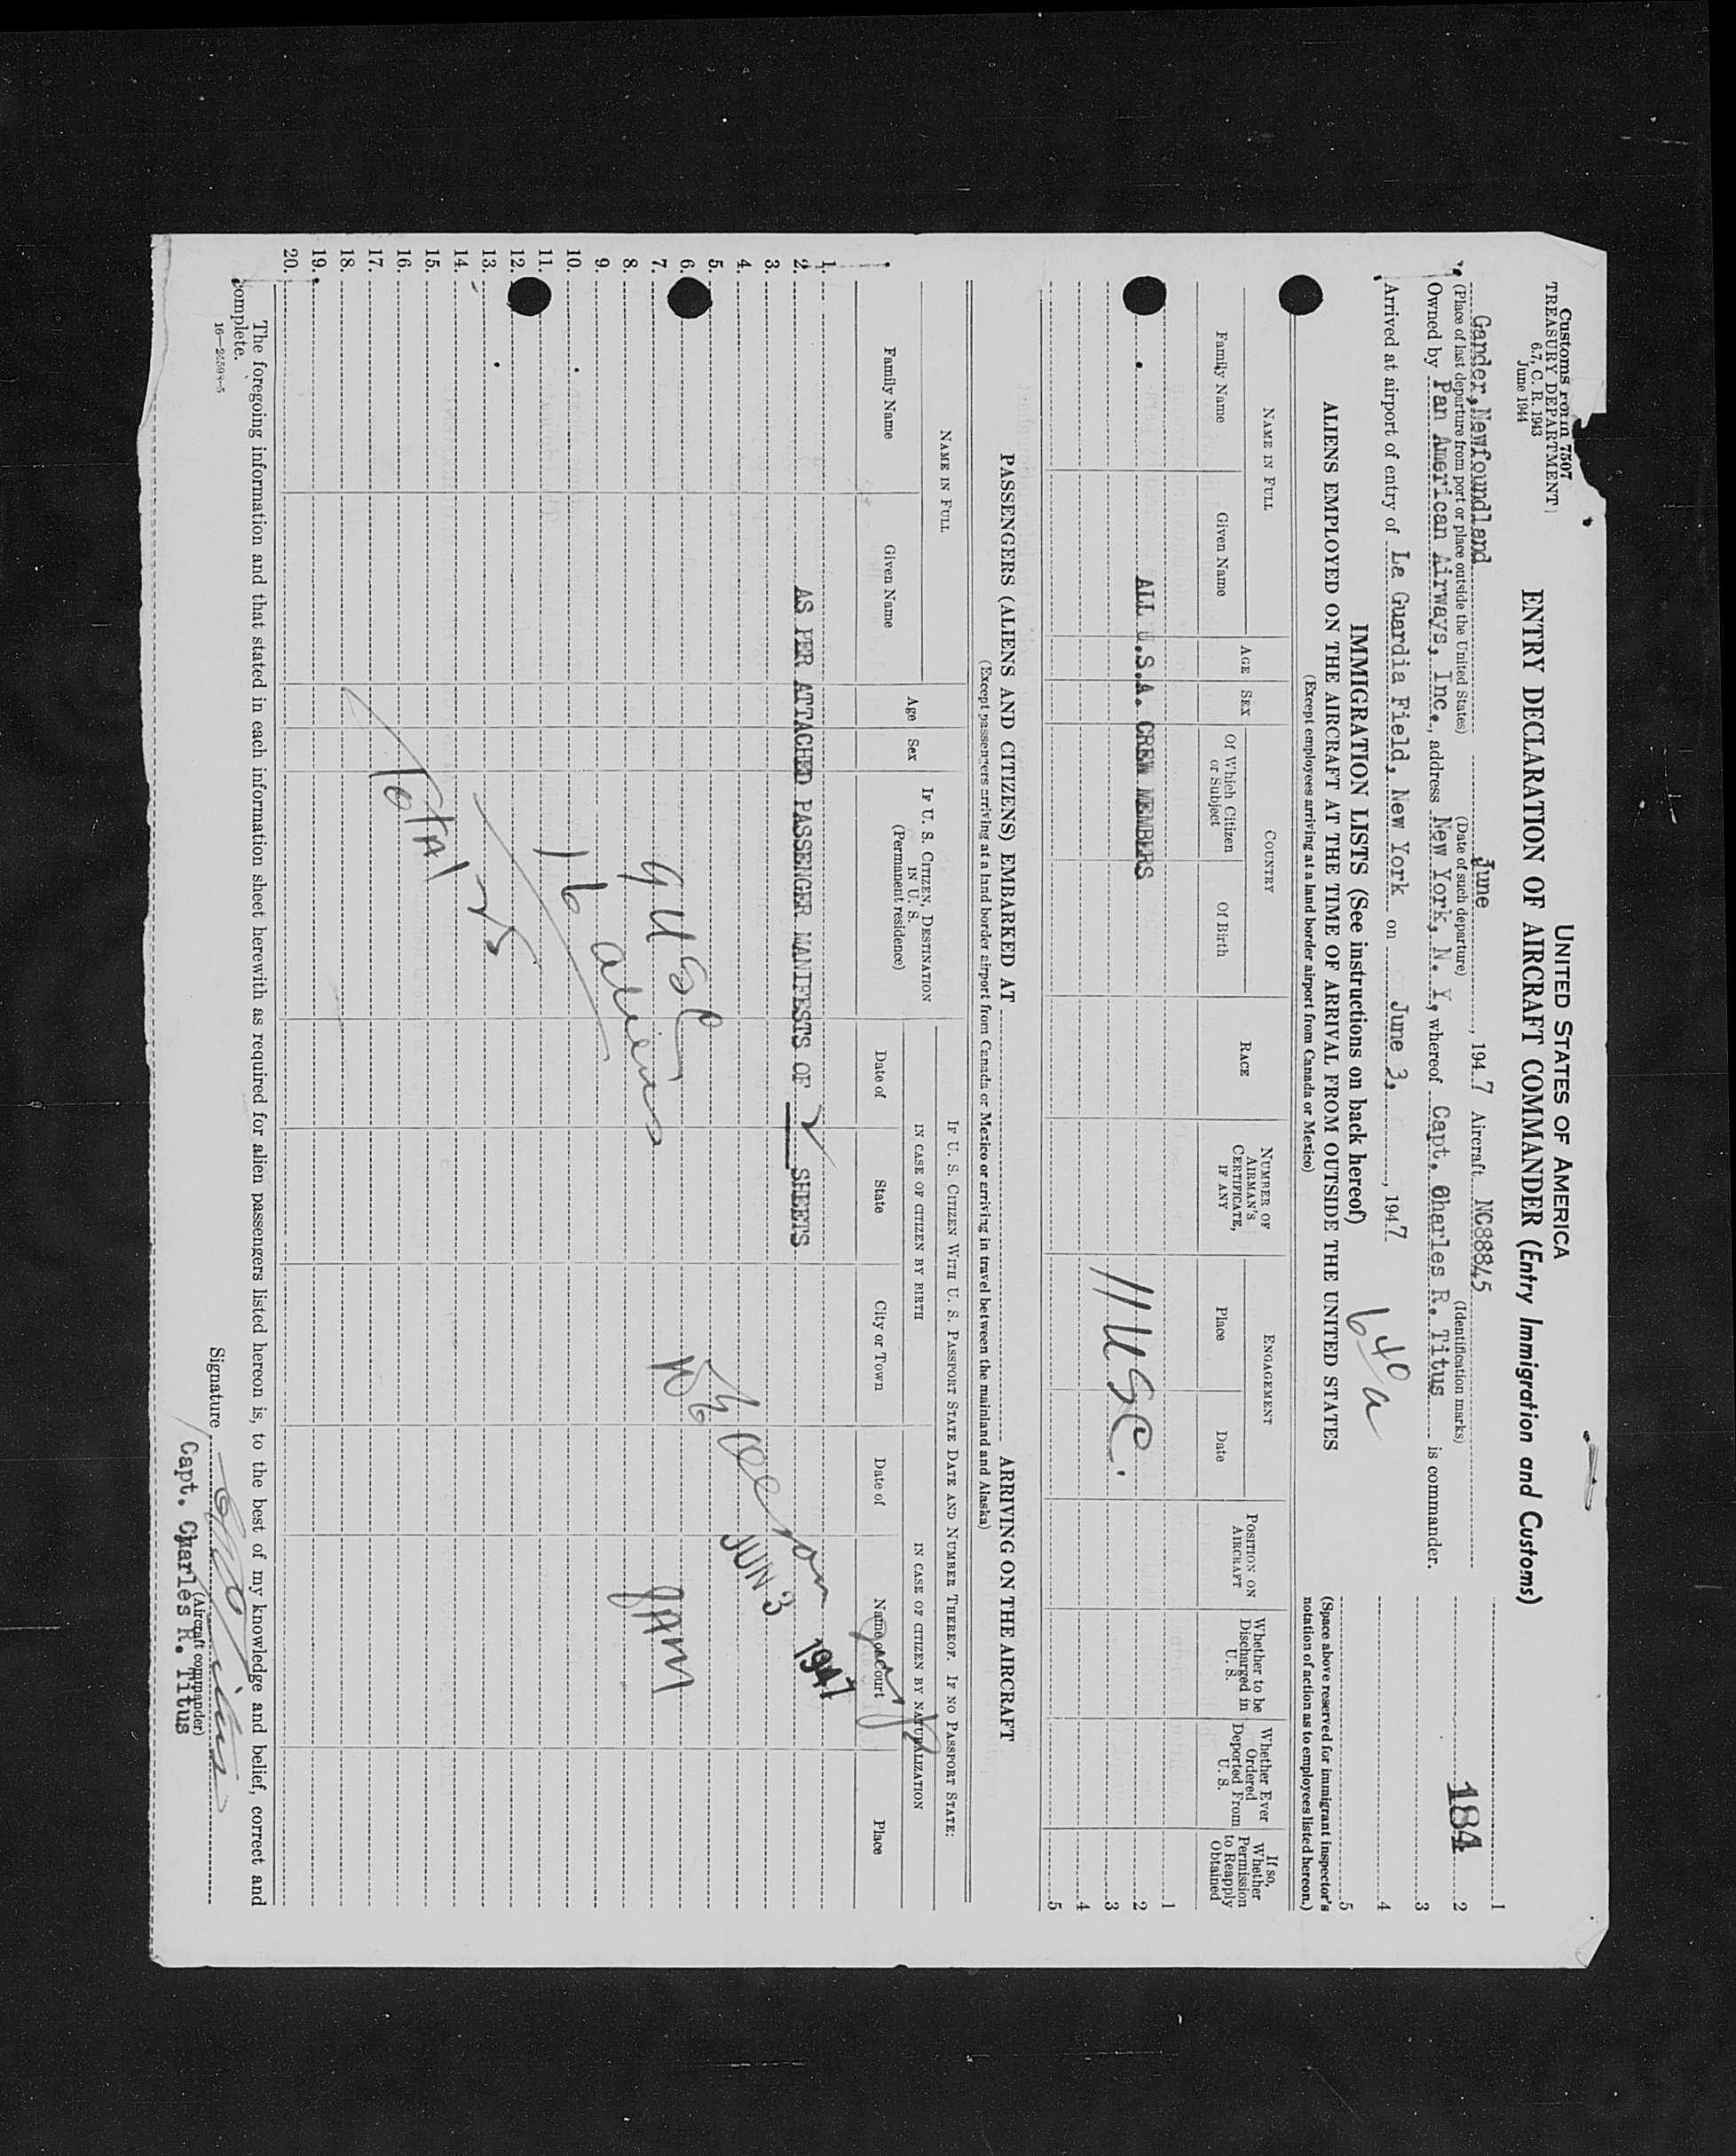 Customs Form 7507
TREASURY DEPARTMENT
6.7, C. R. 1943
June 1944
UNITED STATES OF AMERICA
ENTRY DECLARATION OF AIRCRAFT COMMANDER (Entry Immigration and Customs)
Gander, Newfoundland June , 1947 Aircraft NC88845
(Place of last departure from port or place outside the United States) (Date of such departure) (Identification marks)
Owned by Pan American Airways, Inc., address New York, N. Y., whereof Capt. Charles R. Titus is commander.
Arrived at airport of entry of La Guardia Field, New York on June 3, , 1947
640 a
1
2
184
3
4
5
IMMIGRATION LISTS (See instructions on back hereof)
ALIENS EMPLOYED ON THE AIRCRAFT AT THE TIME OF ARRIVAL FROM OUTSIDE THE UNITED STATES
(Except employees arriving at a land border airport from Canada or Mexico)
(Space above reserved for immigrant inspector's
notation of action as to employees listed hereon.)
NAME IN FULL
Family Name
Given Name
AGE
SEX
COUNTRY
Of Which Citizen
or Subject
Of Birth
RACE
NUMBER OF
AIRMAN'S
CERTIFICATE,
IF ANY
ENGAGEMENT
Place
Date
POSITION ON
AIRCRAFT
Whether to be
Discharged in
U. S.
Whether Ever
Ordered
Deported From
U. S.
If so,
Whether
Permission
to Reapply
Obtained
1
ALL U.S.A. CREW MEMBERS 2
11 USC. 3
4
5
PASSENGERS (ALIENS AND CITIZENS) EMBARKED AT ARRIVING ON THE AIRCRAFT
(Except passengers arriving at a land border airport from Canada or Mexico or arriving in travel between the mainland and Alaska)
NAME IN FULL
Family Name
Given Name
Age
Sex
IF U. S. CITIZEN, DESTINATION
IN U. S.
(Permanent residence)
IF U. S. CITIZEN WITH U. S. PASSPORT STATE DATE AND NUMBER THEREOF. IF NO PASSPORT STATE:
IN CASE OF CITIZEN BY BIRTH
Date of
State
City or Town
IN CASE OF CITIZEN BY NATURALIZATION
Date of
Name of Court
Place
1.
2. AS PER ATTACHED PASSENGER MANIFESTS OF 2 SHEETS
1947
3.
4. JUN 3
5.
6.
7. 9 USC
JAM
8.
9.
10. 16 aliens
11.
12.
13. 25
14.
15. Total
16.
17.
18.
19.
20.
The foregoing information and that stated in each information sheet herewith as required for alien passengers listed hereon is, to the best of my knowledge and belief, correct and
complete.
16—24598-5
Signature
(Aircraft commander)
Capt. Charles R. Titus